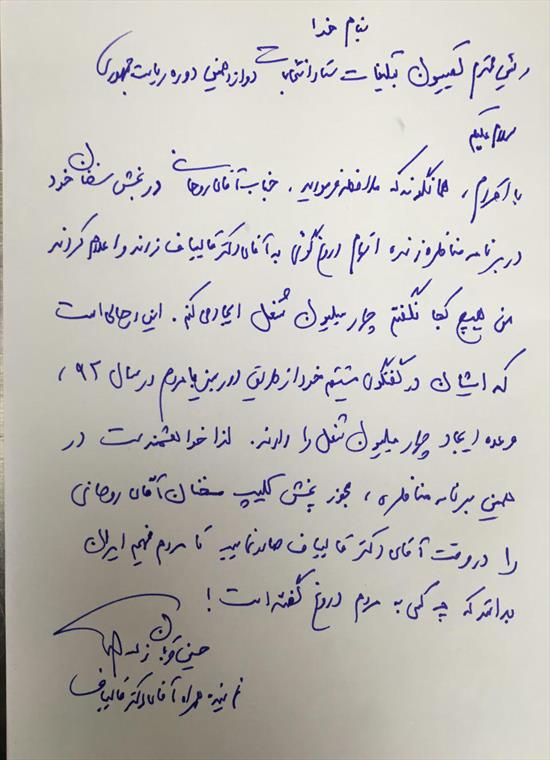 بنام خدا
رئیس محترم کمیسیون تبلیغات ستاد انتخابات دوازدهمین دوره ریاست جمهوری
سلام علیکم
با احترام، همانگونه که ملاحظه فرمودید، جناب آقای روحانی در بخش سخنان خود
در برنامه مناظره زنده اتهام دروغ گوئی به آقای دکتر قالیباف زدند و اعلام کردند
من هیچ کجا نگفتم چهار میلیون شغل ایجاد می کنم. این درحالی است
که ایشان در گفتگوی مستقیم خود از طریق دوربین با مردم در سال ۹۲،
وعده ایجاد چهار میلیون شغل را دادند. لذا خواهشمندست در
همین برنامه مناظره، مجوز پخش کلیپ سخنان آقای روحانی
را در وقت آقای دکتر قالیباف صادر نمایید تا مردم فهیم ایران
بدانند که چه کسی به مردم دروغ گفته است!
حسین قربان زاده
نماینده همراه آقای دکتر قالیباف